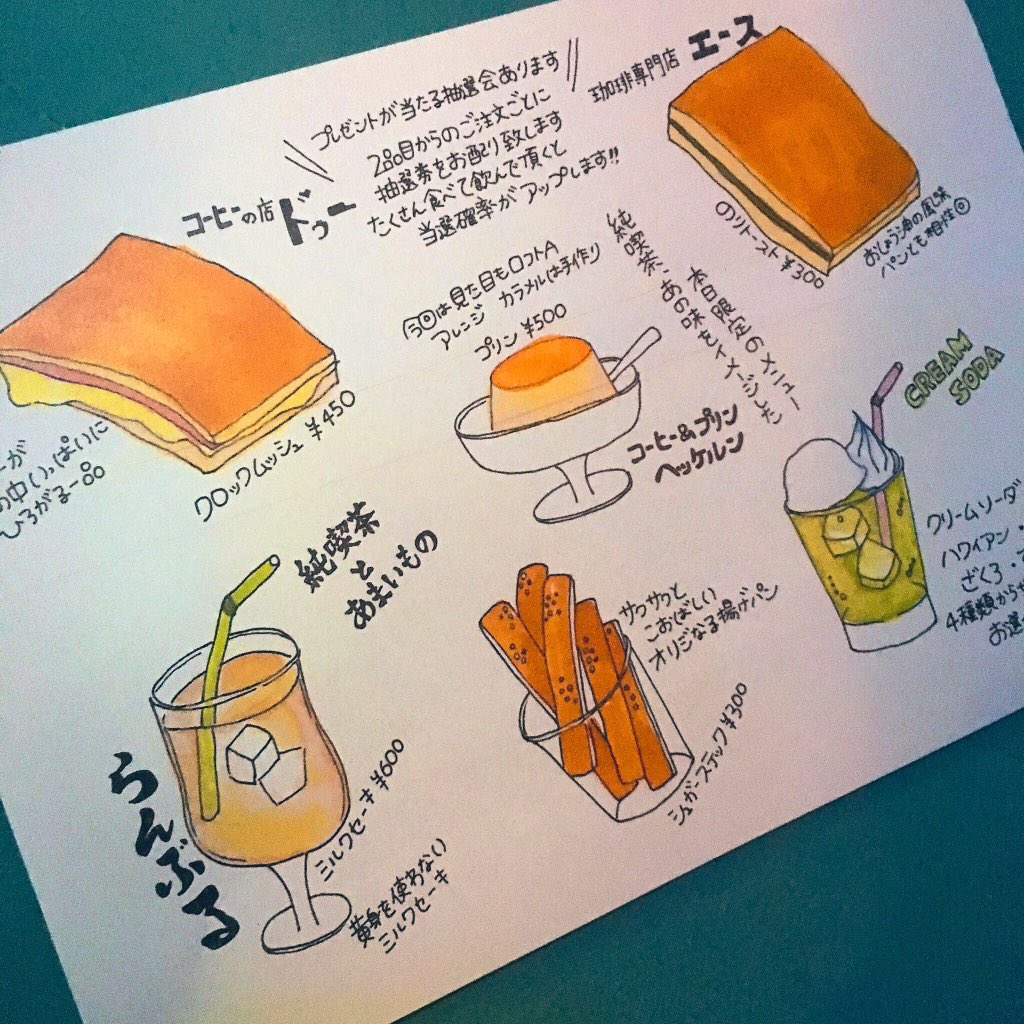 プレゼントが当たる抽選会あります
2品目からのご注文ごとに
抽選券をお配り致します
たくさん食べて飲んで頂くと
当選確率がアップします!!
珈琲専門店 エース
のりトースト ¥300
おしょう油の風味
パンとも相性◎
コーヒーの店 ドゥー
クロックムッシュ ¥450
ーが
の中いっぱいに
ひろがる一品
純喫茶、あの味をイメージした
本日限定のメニュー
今回は見た目もロフトA
アレンジ カラメルは手作り
プリン ¥500
コーヒー&プリン
ヘッケルン
CREAM
SODA
クリームソーダ
ハワイアン・
ざくろ・
4種類から
お選
純喫茶
と
あまいもの
らんぶる
ミルクセーキ ¥600
黄身を使わない
ミルクセーキ
サクサクと
こおばしい
オリジなる揚げパン
シュガーステック ¥300